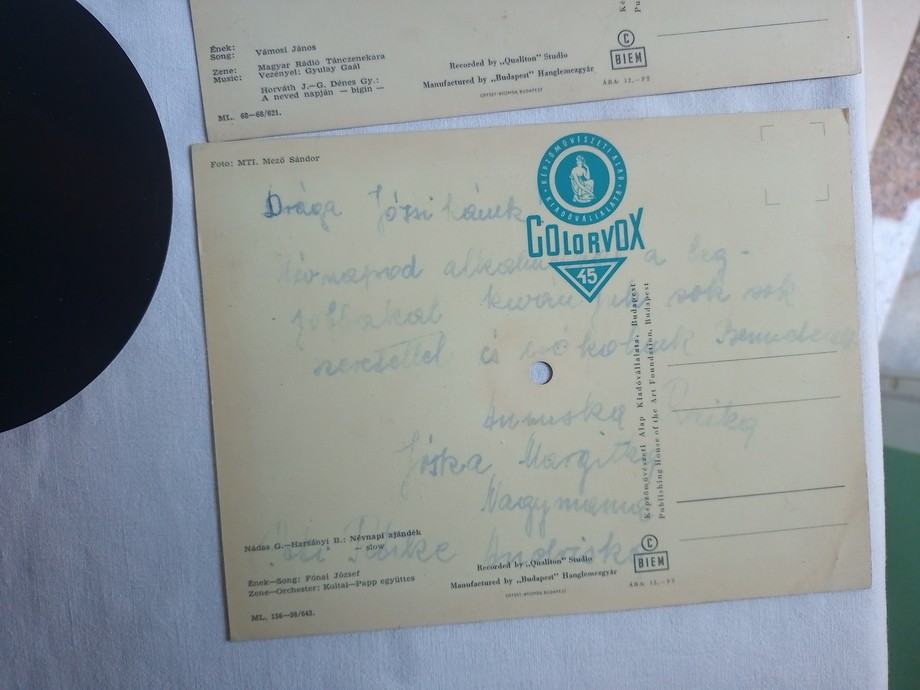 Ének:
Song: Vámosi János
Zene: Magyar Rádió Tánczenekara
Music: Vezényel: Gyulay Gaál
Horváth J.—G. Dénes Gy.:
A neved napján — bigin —
ML. 68—68/621.
Recorded by „Qualiton" Studio
Manufactured by „Budapest" Hanglemezgyár
OFFSET-NYOMDA, BUDAPEST
C
BIEM
ÁRA: 12,— Ft
Foto: MTI. Mező Sándor
KÉPZŐMŰVÉSZETI ALAP KIADÓVÁLLALATA
COLORVOX
45
Drága Józsikánk
Névnapod a leg-
jobbakat kívánjuk sok sok
szeretettel és
Annuska
Jóska Margitka
Nagymama
Képzőművészeti Alap Kiadóvállalata, Budapest
Publishing House of the Art Foundation, Budapest
Nádas G.—Harsányi B.: Névnapi ajándék
— slow
Ének—Song: Fónai József
Zene—Orchester: Koltai—Papp együttes
ML. 156—38/643.
Recorded by „Qualiton" Studio
Manufactured by „Budapest" Hanglemezgyár
OFFSET-NYOMDA, BUDAPEST
C
BIEM
ÁRA: 12,— Ft